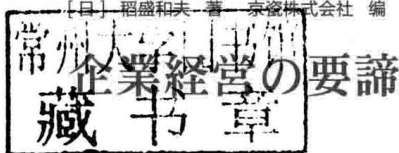 [日] 稻盛和夫 著 京瓷株式会社 编
企業経営の要諦
常州大学图书馆
藏书章